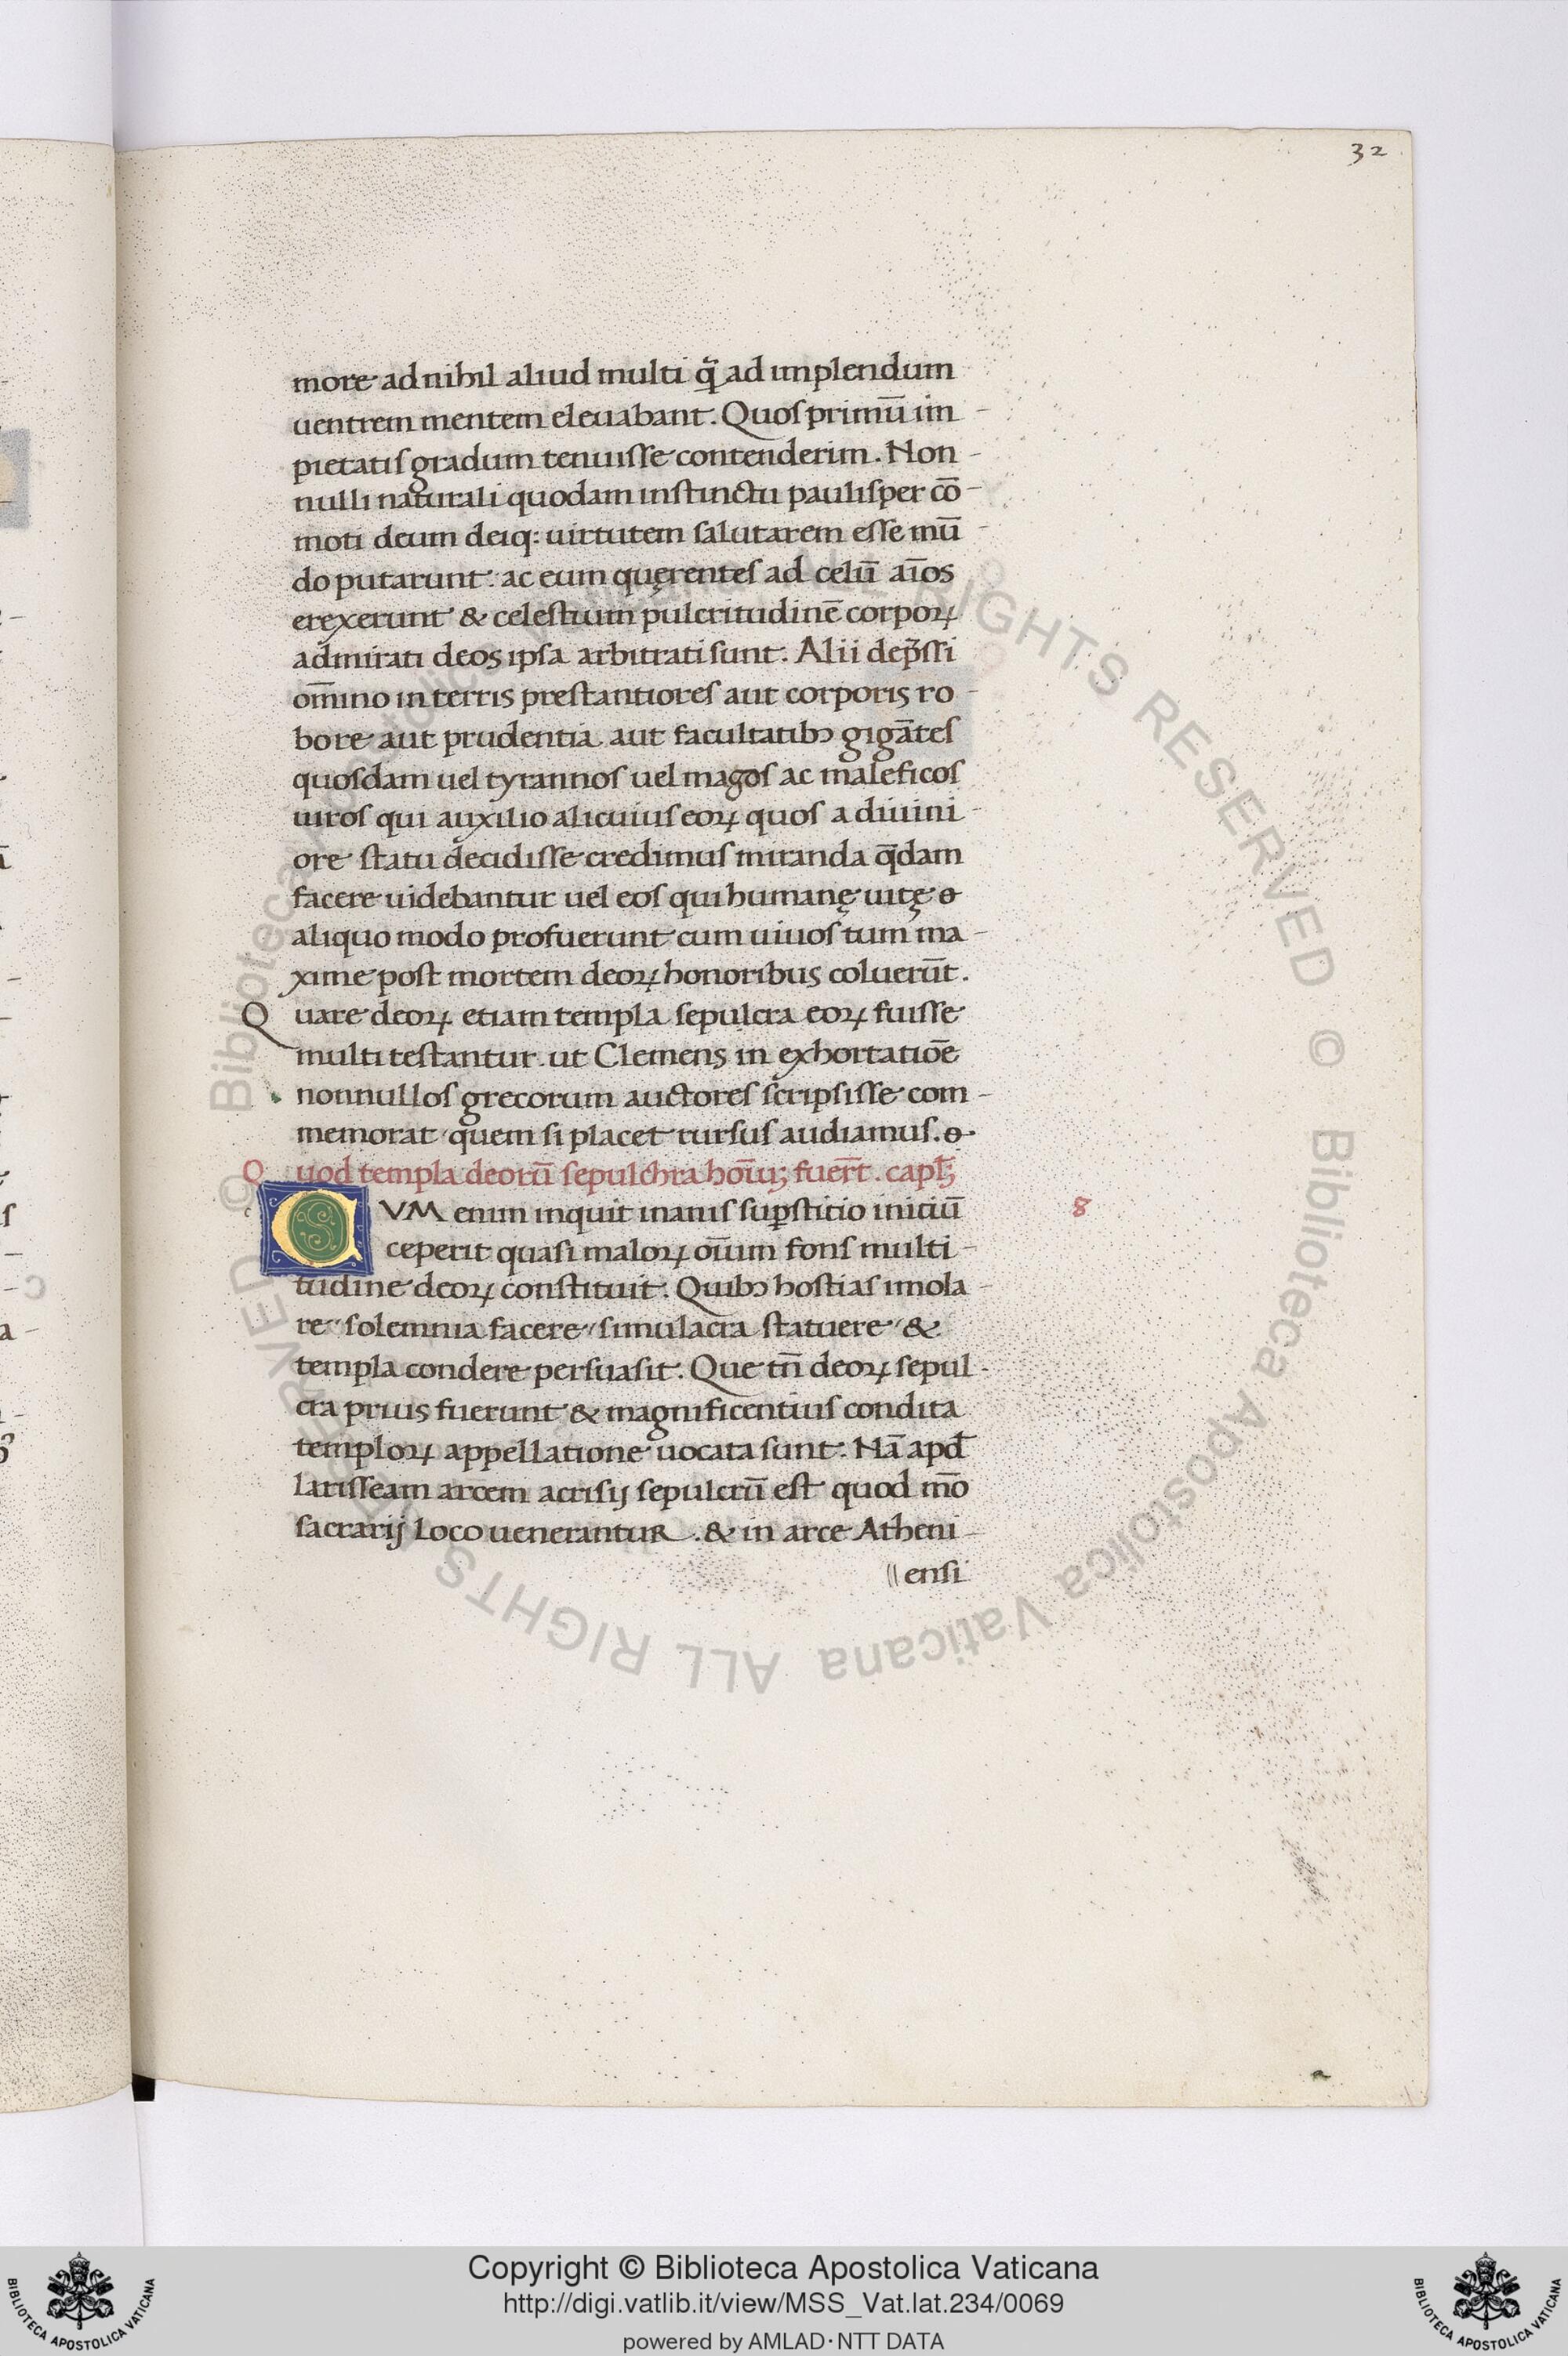 32
more ad nihil aliud multi q̃ ad implendum
uentrem mentem eleuabant. Quos primū im-
pietatis gradum tenuisse contenderim. Non-
nulli naturali quodam instinctu paulisper cō-
moti deum deiq: uirtutem salutarem esse mū-
do putarunt: ac eum quęrentes ad celū aīos
erexerunt & celestium pulcritudinē corpoꝝ
admirati deos ipsa arbitrati sunt. Alii dep̄ssi
om̄ino in terris prestantiores aut corporis ro-
bore aut prudentia aut facultatibꝫ gigātes
quosdam uel tyrannos uel magos ac maleficos
uiros qui auxilio alicuius eoꝝ quos a diuini-
ore statu decidisse credimus miranda q̄dam
facere uidebantur uel eos qui humanę uitę
aliquo modo profuerunt cum uiuos tum ma-
xime post mortem deoꝝ honoribus coluerūt.
Quare deoꝝ etiam templa sepulcra eoꝝ fuisse
multi testantur. ut Clemens in exhortatiōe
nonnullos grecorum auctores scripsisse com-
memorat quem si placet rursus audiamus.
Quod templa deorū sepulchra hoīuꝫ fuer̄t. capl̄ꝫ
CVM enim inquit inanis suꝑstitio initiū 8
ceperit quasi maloꝝ oīum fons multi-
tudine deoꝝ constituit. Quibꝫ hostias imola-
re solemnia facere simulacra statuere &
templa condere persuasit. Que tn̄ deoꝝ sepul-
cra prius fuerunt & magnificentius condita
temploꝝ appellatione uocata sunt. Nā apđ
larisseam arcem acrisij sepulcrū est quod mō
sacrarij loco uenerantur. & in arce Atheni-
ensi
Copyright © Biblioteca Apostolica Vaticana
http://digi.vatlib.it/view/MSS_Vat.lat.234/0069
powered by AMLAD·NTT DATA
BIBLIOTECA APOSTOLICA VATICANA
BIBLIOTECA APOSTOLICA VATICANA
© Biblioteca Apostolica Vaticana ALL RIGHTS RESERVED © Biblioteca Apostolica Vaticana ALL RIGHTS RESERVED